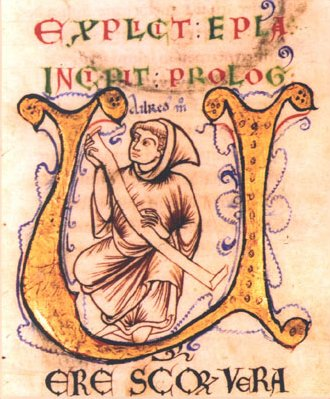 EXPLICT : EPLA
INCIPIT : PROLOG
U
ERE SCOR VERA